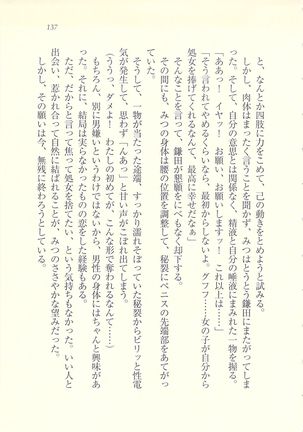 137
と、なんとか四肢に力をこめて、己の動きをとめようと試みる。
しかし、肉体はまったく言うことを聞かず、みつはとうとう鎌田にまたがってしま
った。そして、自分の意思とは関係なく、精液と自分の唾液にまみれた一物を握る。
「ああっ！　イヤッ！　お願い、お願いしますッ！　これ以上は……」
「そう言われてやめるくらいなら、最初からしないよ。グフフ……女の子が自分から
処女を捧げてくれるなんて、最高に幸せだなぁ」
そんなことを言って、鎌田が懇願をにべもなく却下する。
その間にも、みつの身体は腰の位置を調整して、秘裂にペニスの先端部をあてがっ
ていた。
そうして、一物が当たった途端、すっかり濡れそぼっていた秘裂からビリッと性電
気が発生して、思わず「んあっ」と甘い声がこぼれ出てしまう。
（ううっ、ダメよ！　わたしの初めてが、こんな形で奪われるなんて……）
もちろん、別に男嫌いというわけではないから、男性の身体にはちゃんと興味があ
った。それに、結局は実らなかったものの恋をした経験もある。
ただ、だからと言って焦って処女を捨てたい、という気持ちもなかった。いい人と
出会い、惹かれ合って自然に結ばれることが、みつのささやかな望みだった。
しかし、その願いは今、無残に終わろうとしている。